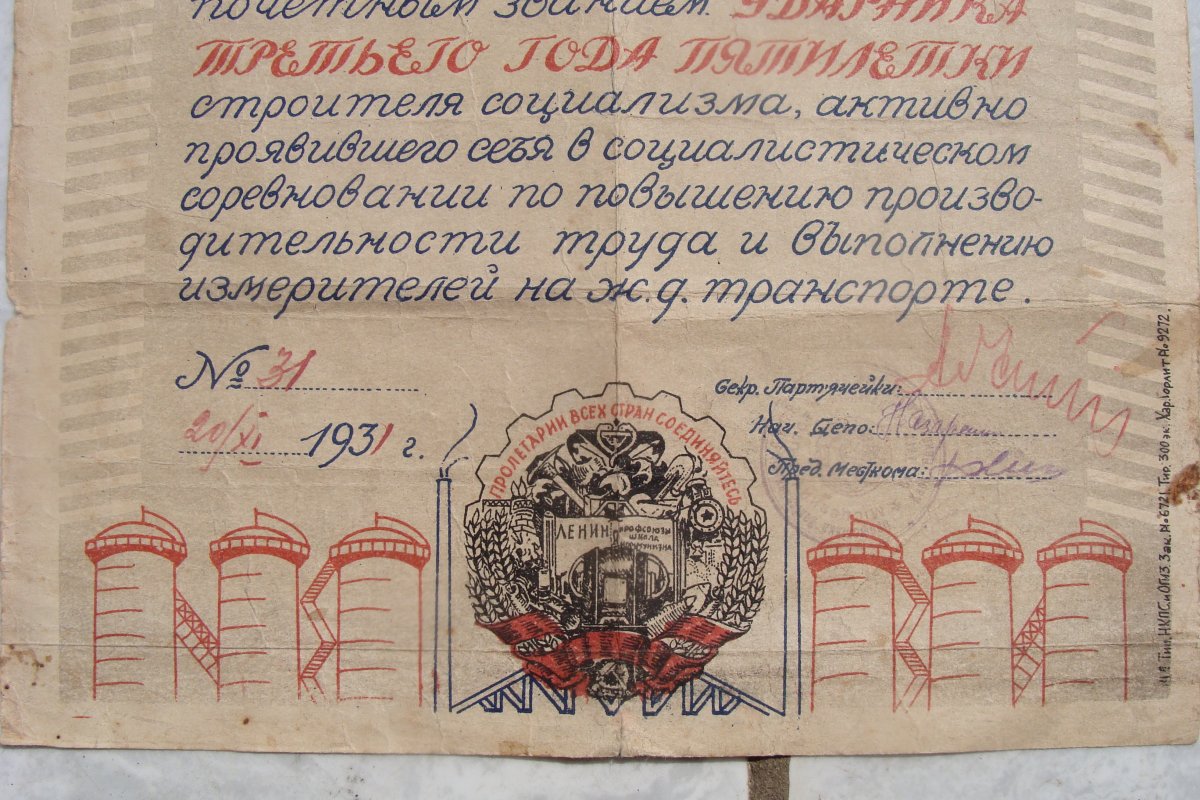 почетным званием УДАРНИКА
ТРЕТЬЕГО ГОДА ПЯТИЛЕТКИ
строителя социализма, активно
проявившего себя в социалистическом
соревновании по повышению произво-
дительности труда и выполнению
измерителей на ж.д. транспорте.
№ 31
20/XI 1931 г.
Секр. Партячейки:
Нач. Депо:
Пред. Месткома:
ПРОЛЕТАРИИ ВСЕХ СТРАН СОЕДИНЯЙТЕСЬ
ЛЕНИН
ПРОФСОЮЗЫ
ШКОЛА
КОММУНИЗМА
Тип. НКПС и ОГИЗ Зак. № 6721 Тир. 300 эк. Хар. Горлит № 9272.